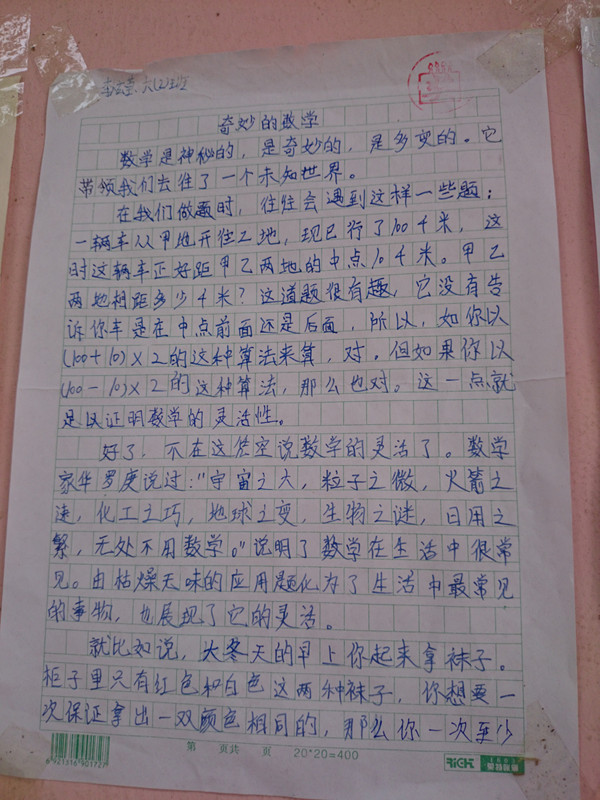 六(2)班
奇妙的数学
数学是神秘的，是奇妙的，是多变的。它
带领我们去往了一个未知世界。
在我们做题时，往往会遇到这样一些题：
一辆车从甲地开往乙地，现已行了100千米，这
时这辆车正好距甲乙两地的中点10千米。甲乙
两地相距多少千米？这道题很有趣，它没有告
诉你车是在中点前面还是后面，所以，如你以
(100+10)×2的这种算法来算，对。但如果你以
(100-10)×2的这种算法，那么也对。这一点就
足以证明数学的灵活性。
好了，不在这凭空说数学的灵活了。数学
家华罗庚说过："宇宙之大，粒子之微，火箭之
速，化工之巧，地球之变，生物之谜，日用之
繁，无处不用数学。"说明了数学在生活中很常
见。由枯燥无味的应用题化为了生活中最常见
的事物，也展现了它的灵活。
就比如说，大冬天的早上你起来拿袜子。
柜子里只有红色和白色这两种袜子，你想要一
次保证拿出一双颜色相同的，那么你一次至少
第 页共 页 20*20=400
6921316901727
RICH